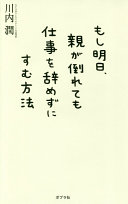 もし明日、
親が倒れても
仕事を辞めずに
すむ方法
川内 潤
ポプラ社